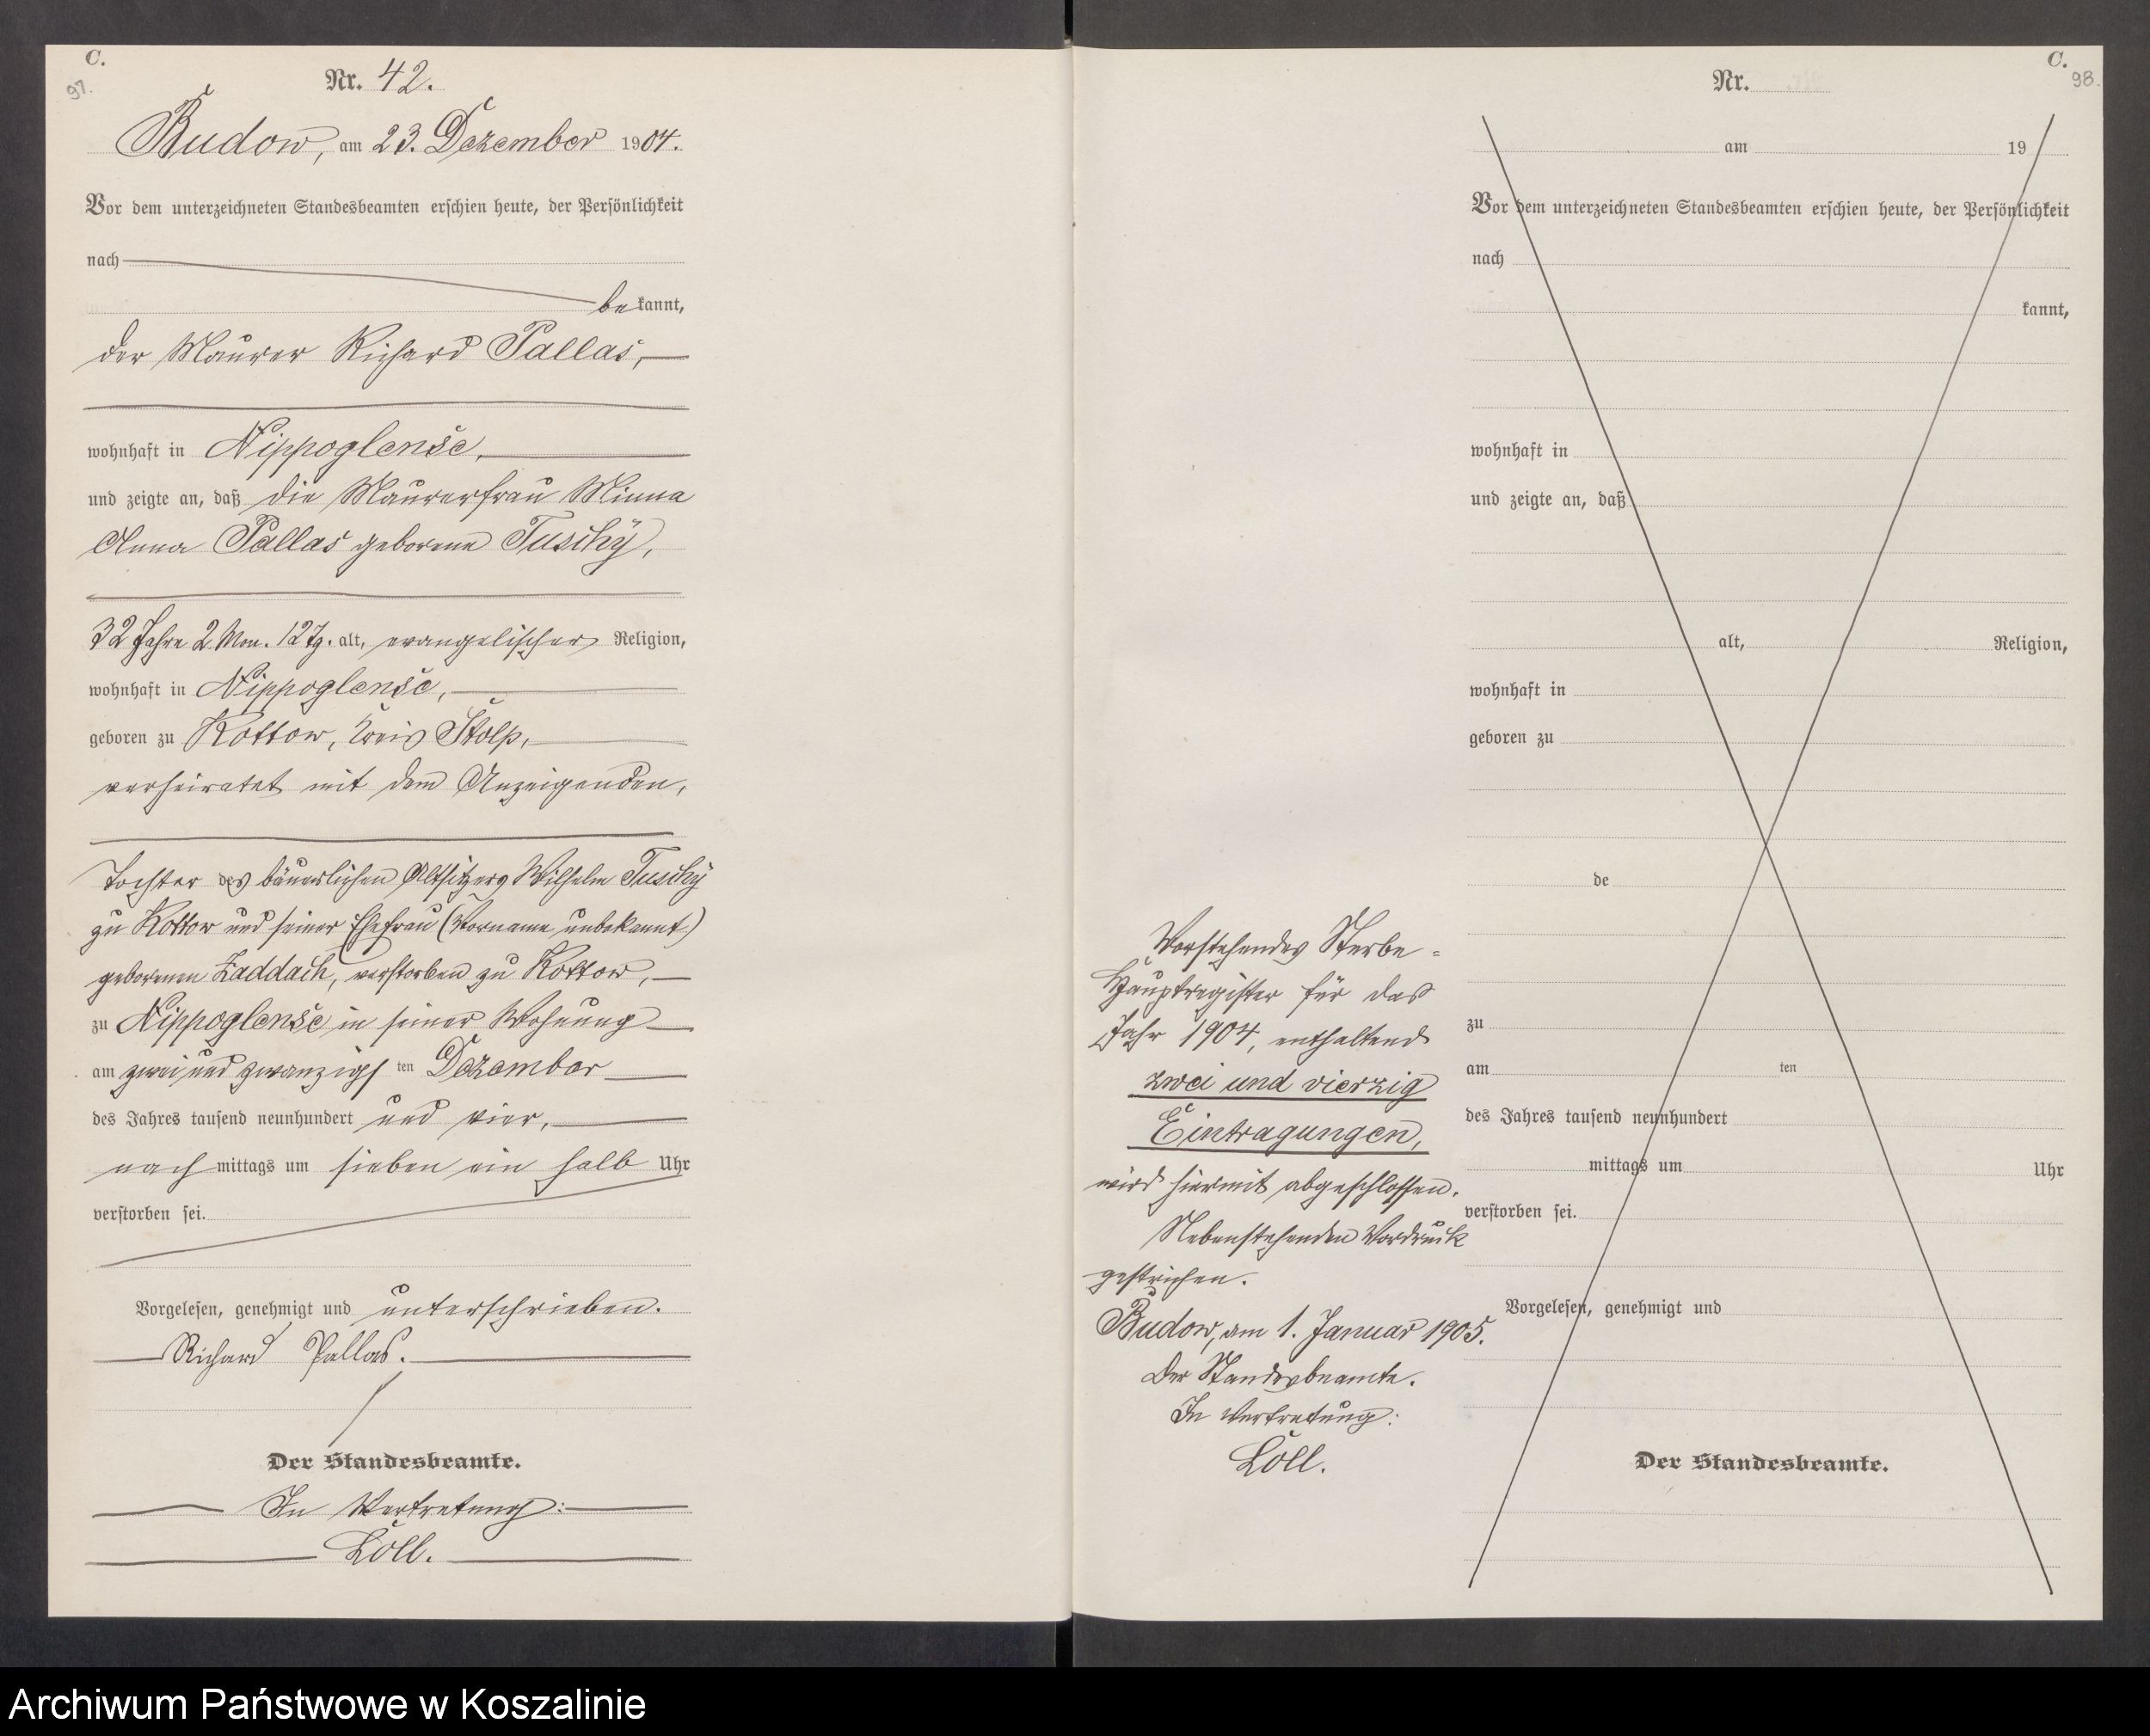 C.
97.
Nr. 42.
Budow, am 23. Dezember 1904.
Vor dem unterzeichneten Standesbeamten erschien heute, der Persönlichkeit
nach
bekannt,
der Maurer Richard Pallas,
wohnhaft in Nippoglense,
und zeigte an, daß die Maurerfrau Minna
Anna Pallas geborene Tuschÿ,
32 Jahre 2 Mon. 12 Tg. alt, evangelischer Religion,
wohnhaft in Nippoglense,
geboren zu Kottow, Kreis Stolp,
verheiratet mit dem Anzeigenden,
Tochter des bäuerlichen Altsitzers Wilhelm Tuschÿ
zu Kottow und seiner Ehefrau (Vorname unbekannt)
geborenen Zaddach, verstorben zu Kottow,
zu Nippoglense in seiner Wohnung
am zwei und zwanzigsten Dezember
des Jahres tausend neunhundert und vier,
nach mittags um sieben ein halb Uhr
verstorben sei.
Vorgelesen, genehmigt und unterschrieben.
Richard Pallas.
Der Standesbeamte.
In Vertretung:
Löll.
C.
98.
Nr.
am 19
Vor dem unterzeichneten Standesbeamten erschien heute, der Persönlichkeit
nach
kannt,
wohnhaft in
und zeigte an, daß
alt, Religion,
wohnhaft in
geboren zu
de
zu
am ten
des Jahres tausend neunhundert
mittags um Uhr
verstorben sei.
Vorgelesen, genehmigt und
Der Standesbeamte.
Vorstehendes Sterbe-
Hauptregister für das
Jahr 1904, enthaltend
zwei und vierzig
Eintragungen,
wird hiermit abgeschlossen.
Nebenstehenden Vordruck
gestrichen.
Budow, am 1. Januar 1905.
Der Standesbeamte.
In Vertretung:
Löll.
Archiwum Państwowe w Koszalinie